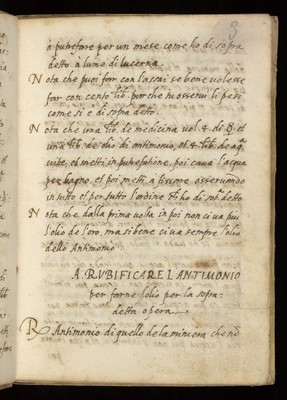 3
à putrefare per un mese come ho di sopra
detto à lume di lucerna
Nota che puoi far con l'assai se bene volesse
far con cento lib. porche tu osserui li pesi
come si e di sopra detto.
Nota che una lib. de medicina vol. 4. di et
una lib. de olio di antimonio, et 4. lib. de aq.
vite, et metti in putrefattione, poi caua l'acqua
per bagno, et poi metti à fissare osseruando
in tutto et per tutto l'ordine ti ho di sop. detto
Nota che dalla prima volta in poi non ci ua piu
l'olio de l'oro, ma si bene ci ua sempre l'olio
dello Antimonio
A RVBIFICARE L ANTIMONIO
per farne l'olio per la sopra-
detta opera
R Antimonio di quello de la minera che nō